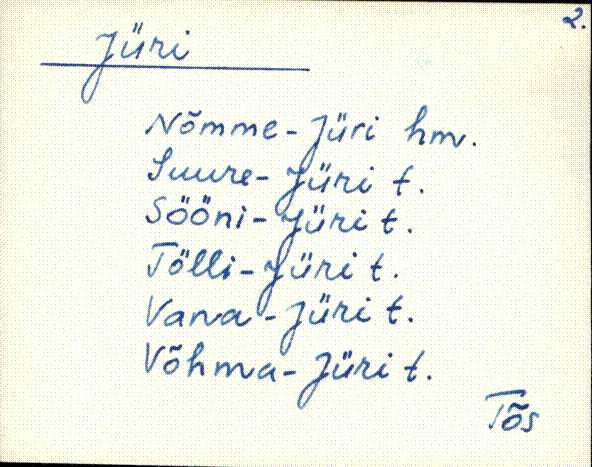 2.
Jüri
Nõmme-Jüri hm.
Suure-Jüri t.
Sööni-Jüri t.
Tölli-Jüri t.
Vana-Jüri t.
Võhma-Jüri t.
Tõs